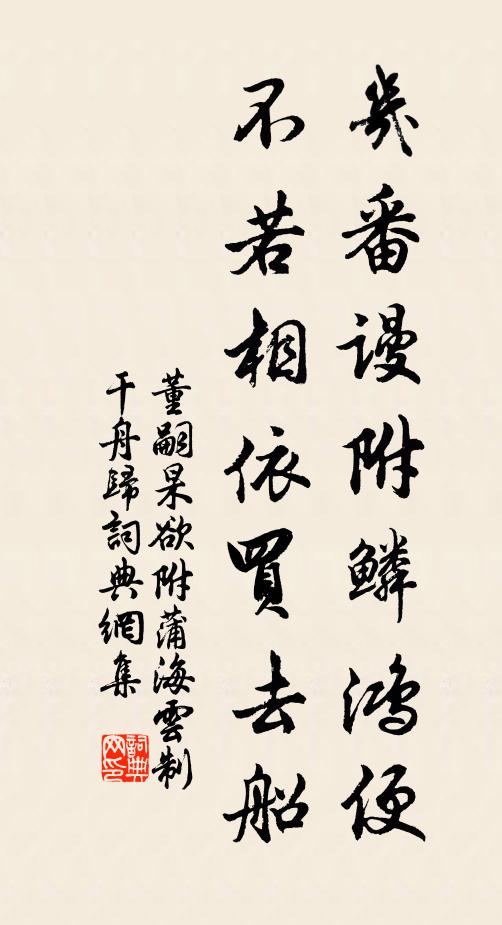 幾番謾附鱗鴻便
不若相依買去船
董嗣杲欲附蒲海雲制
干舟歸詞典網集
詞典
网印